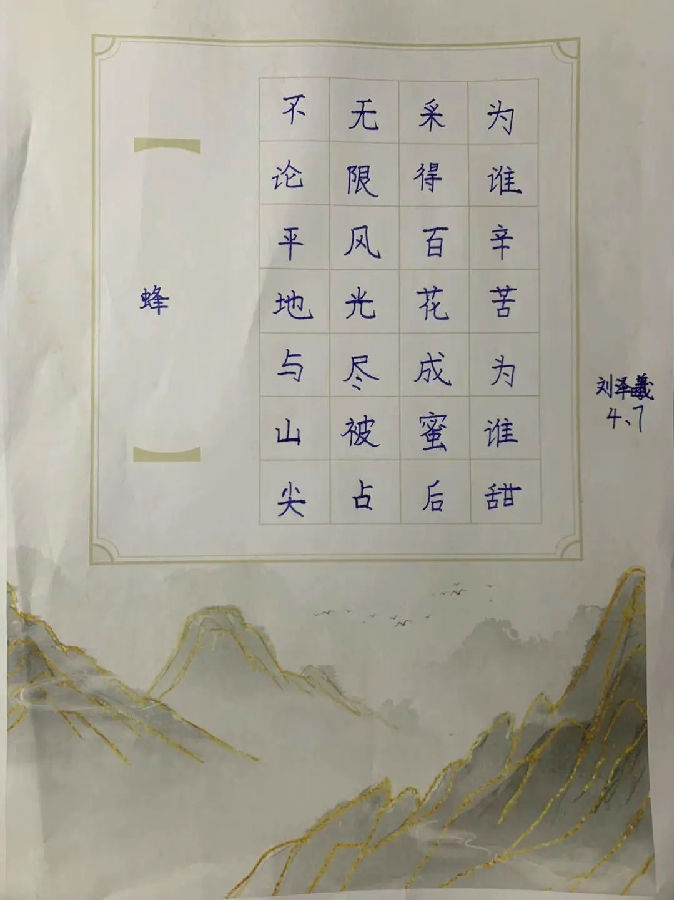 蜂
不论平地与山尖
无限风光尽被占
采得百花成蜜后
为谁辛苦为谁甜
刘泽曦
4、7